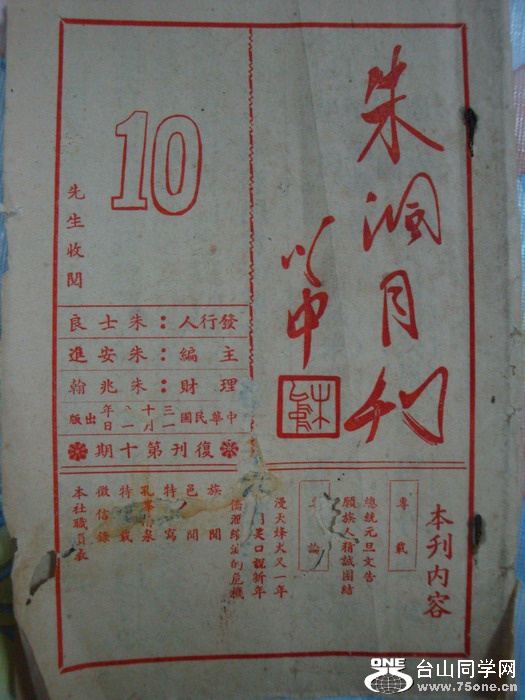 朱洞月刊
以中
10
先生收閱
發行人：朱士良
主編：朱安進
理財：朱兆翰
中華民國三 十月一日出版
復刊第十期
本刊內容
專載
總統元旦文告
願族人精誠團結
論
漫天烽火又一年
口說新年
的危機
族聞
邑聞
特寫
孔 泉
特載
徵信錄
本社職員表
ONE
台山同学网
www.75one.cn